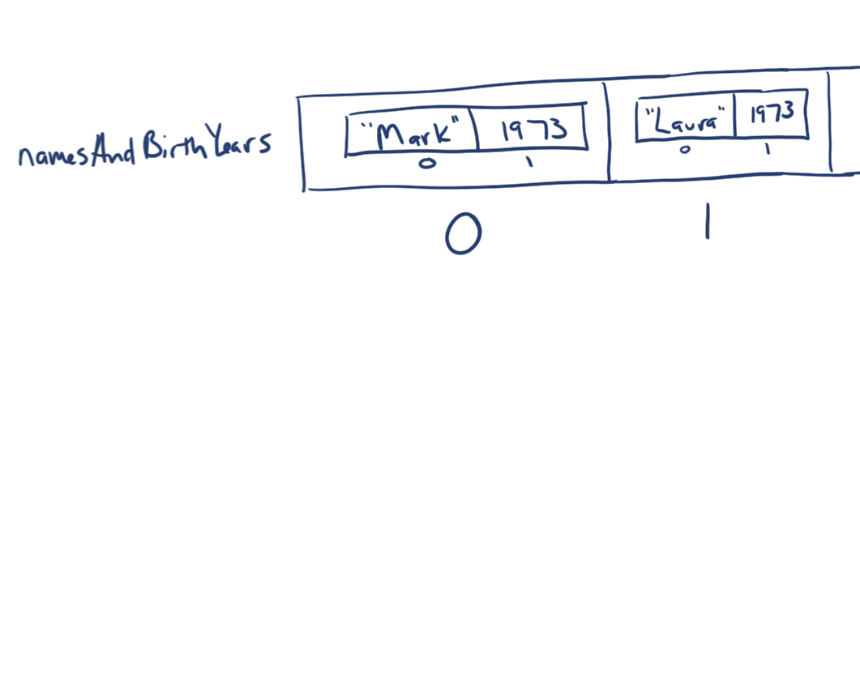 namesAndBirthYears "Mark" 1973 "Laura" 1973
0 1 0 1
0 1